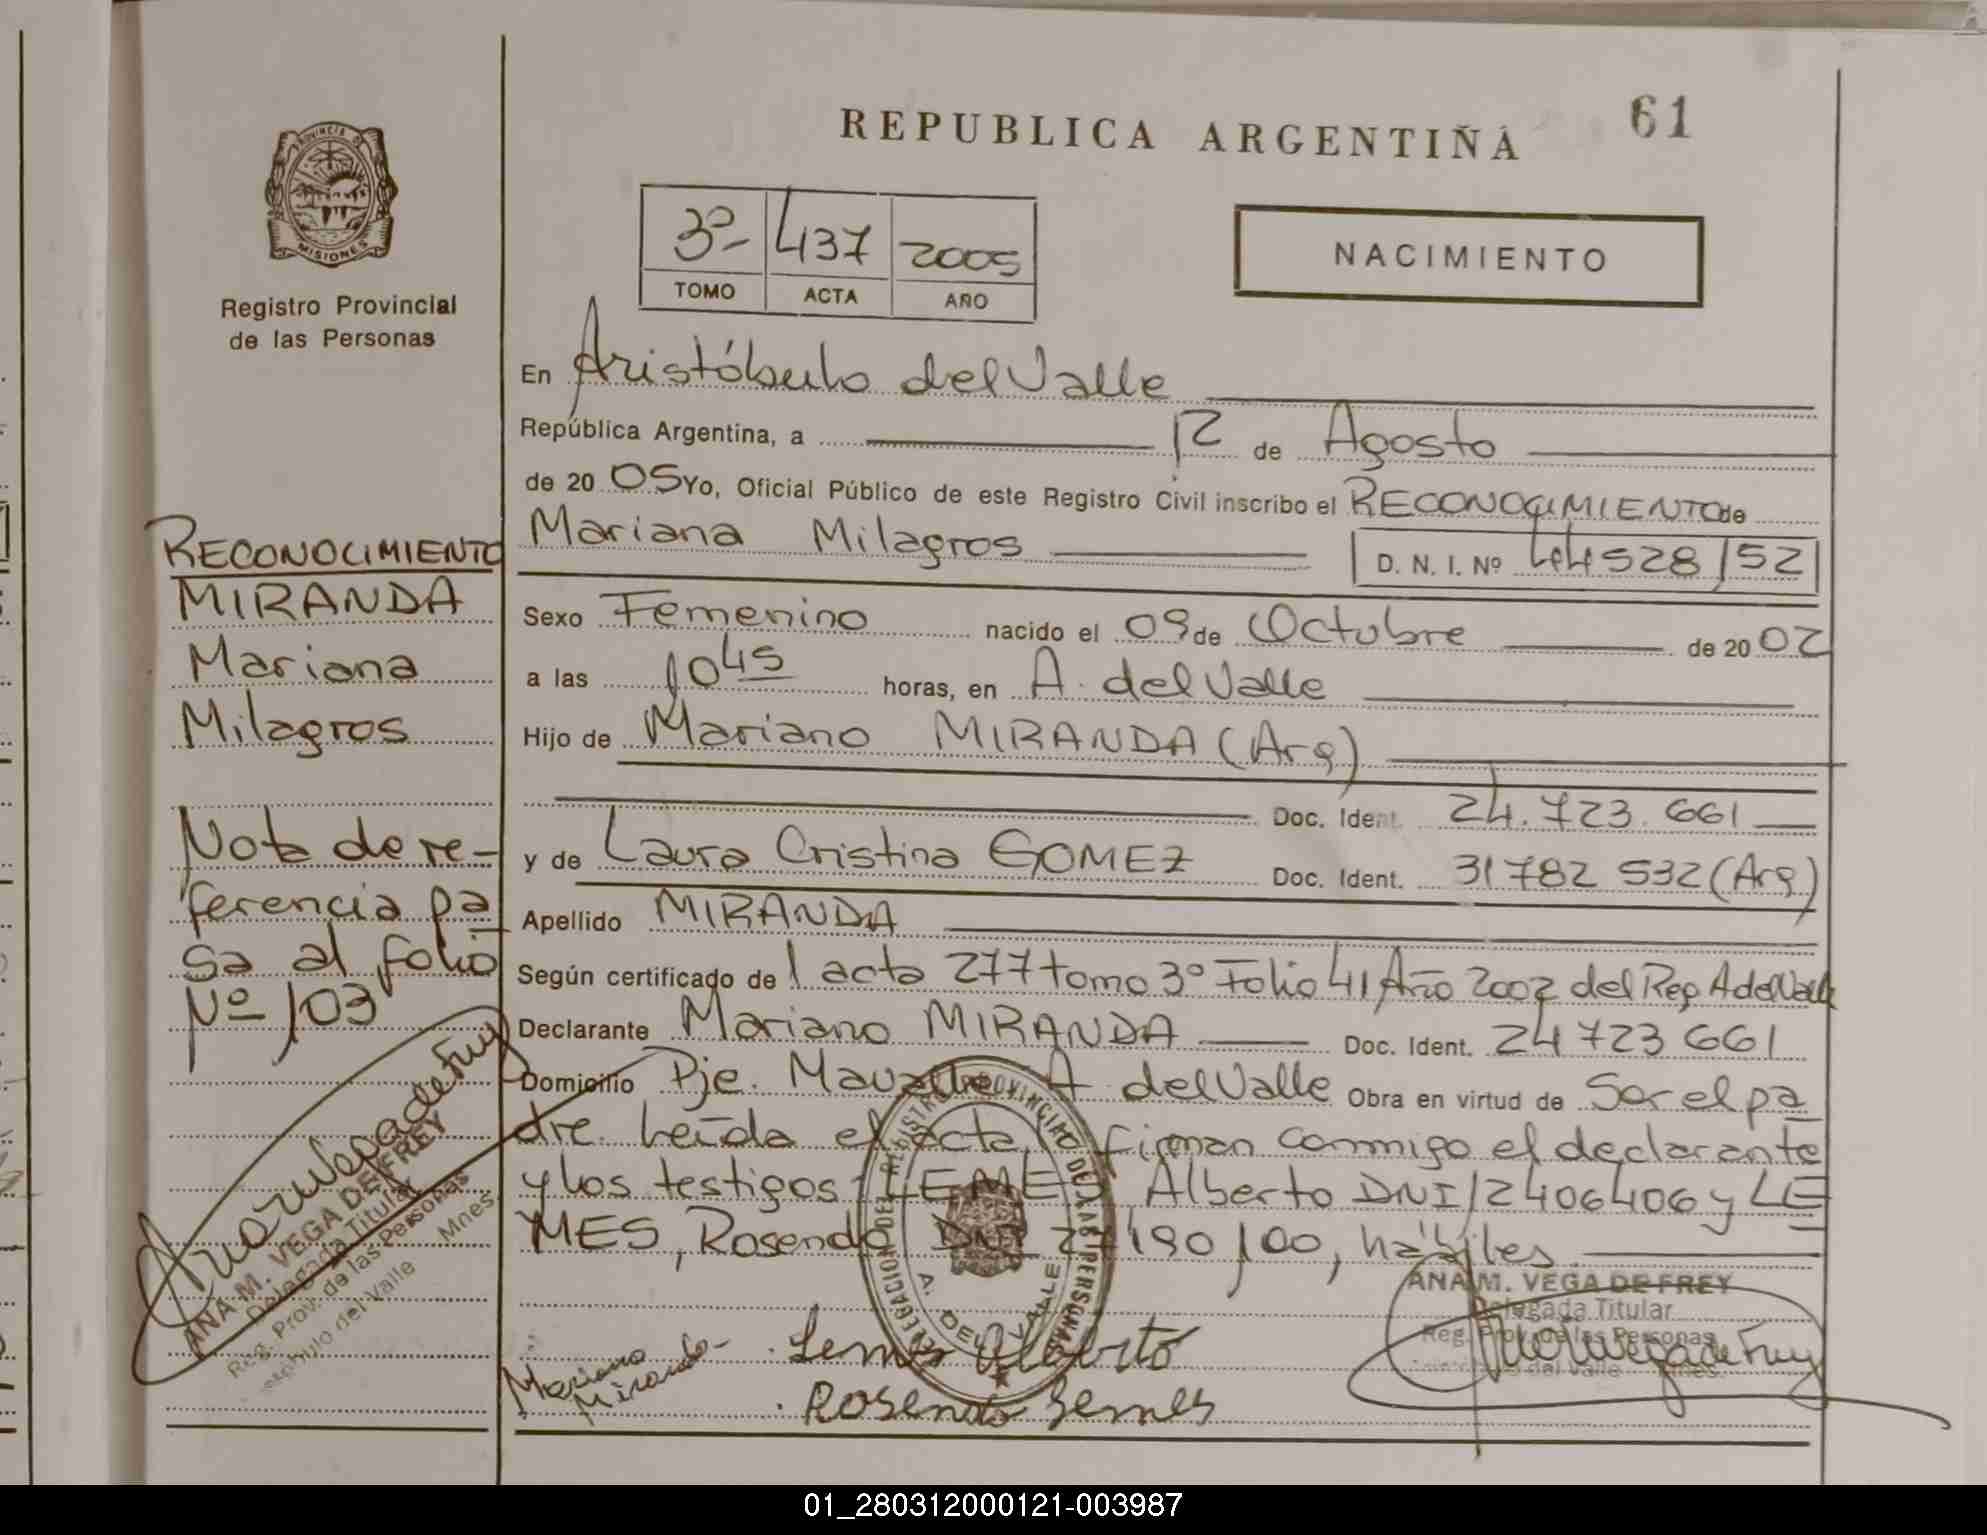 REPUBLICA ARGENTINA
61
PROVINCIA DE
MISIONES
Registro Provincial
de las Personas
3º 437 2005
TOMO ACTA AÑO
NACIMIENTO
En Aristóbulo del Valle
República Argentina, a 12 de Agosto
de 20 05 Yo, Oficial Público de este Registro Civil inscribo el RECONOCIMIENTO de
Mariana Milagros D. N. I. Nº 44528152
Sexo Femenino nacido el 09 de Octubre de 20 02
a las 10 45 horas, en A. del Valle
Hijo de Mariano MIRANDA (Arg)
Doc. Ident. 24.723.661
y de Laura Cristina GOMEZ Doc. Ident. 31782 532 (Arg)
Apellido MIRANDA
Según certificado de l acta 277 tomo 3º Folio 41 Año 2002 del Reg A del Valle
Declarante Mariano MIRANDA Doc. Ident. 24 723 661
Domicilio Pje. A del Valle Obra en virtud de Ser el pa
dre. Leída el acta, firman conmigo el declarante
y los testigos: LEMES Alberto DNI 12406406 y LE
MES, Rosendo DNI 100, hábiles
RECONOCIMIENTO
MIRANDA
Mariana
Milagros
Nota de re-
ferencia pa
sa al folio
Nº 103
Ana M Vega de Frey
ANA M. VEGA DE FREY
Delegada Titular
Reg. Prov. de las Personas
Aristóbulo del Valle Mnes
DELEGACION DEL REGISTRO PROVINCIAL DE LAS PERSONAS
A. DEL VALLE
Mariano
Miranda
Lemes Alberto
Rosendo Lemes
ANA M. VEGA DE FREY
Delegada Titular
Reg. Prov. de las Personas
del Valle Mnes.
01_280312000121-003987